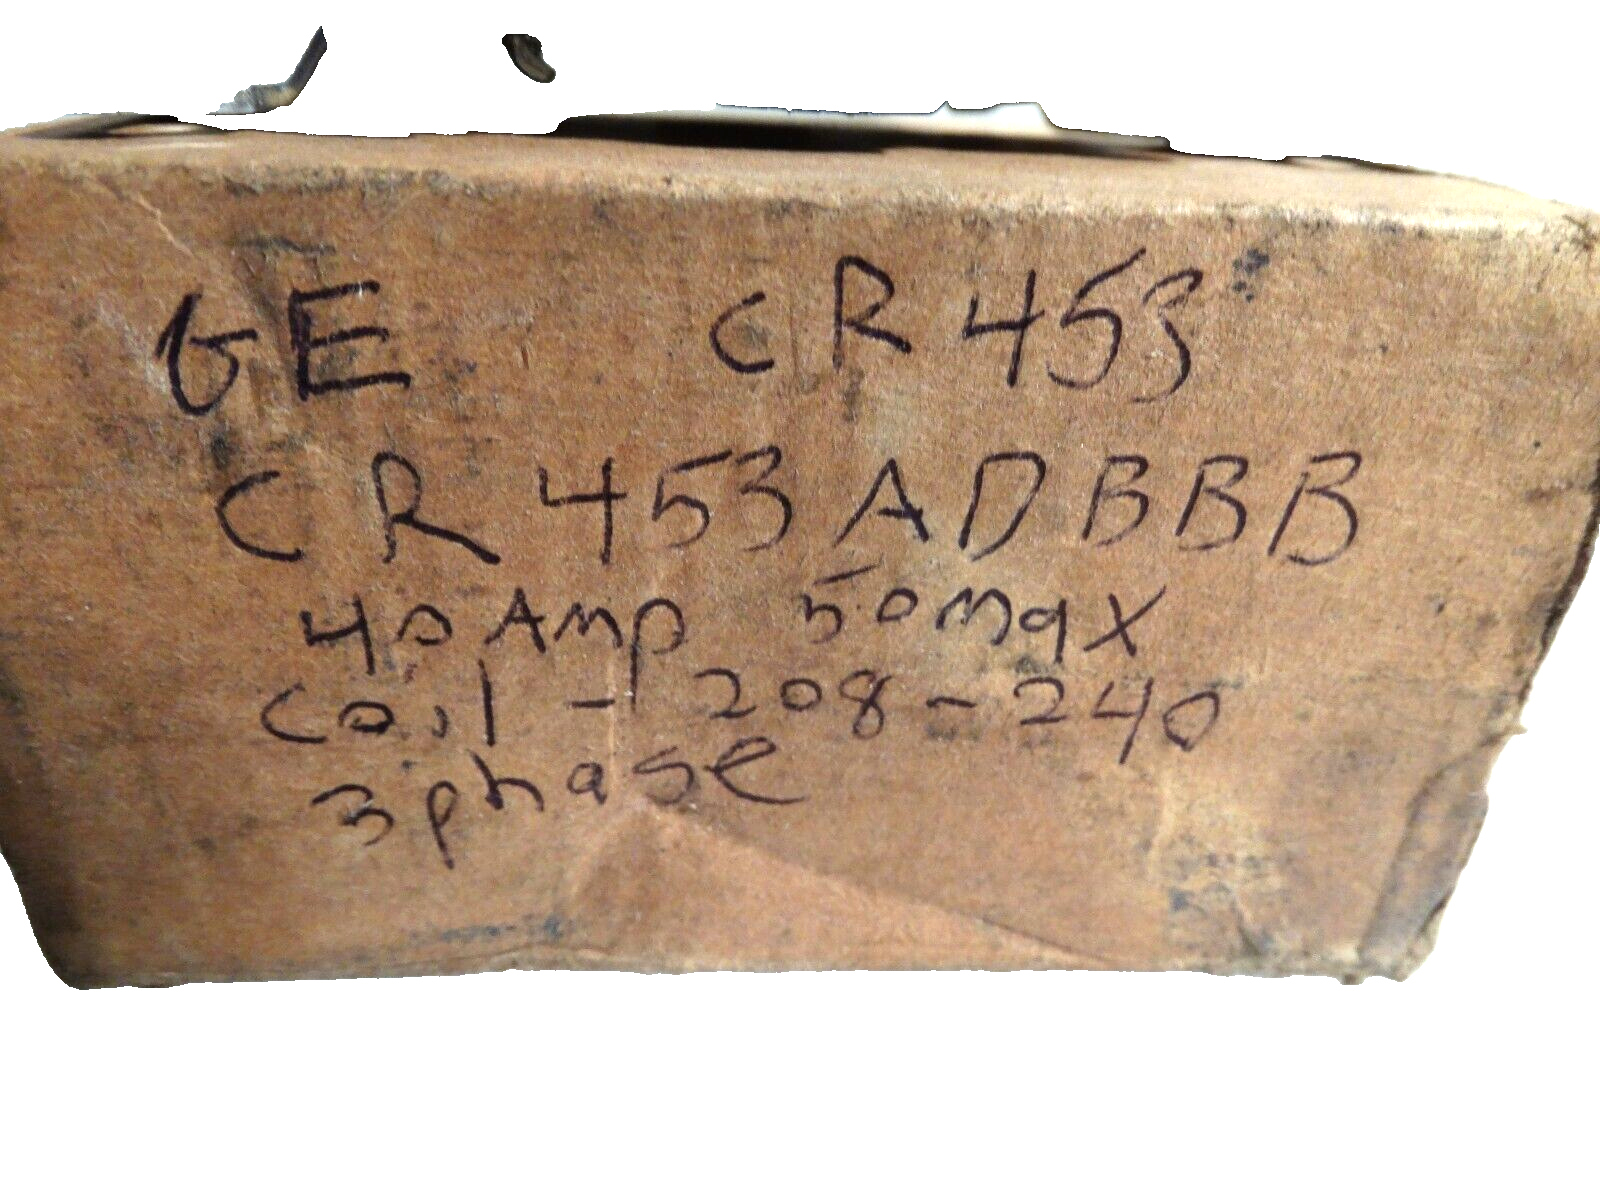 GE CR453
CR453ADBBB
40 Amp 50 max
coil - 208-240
3phase